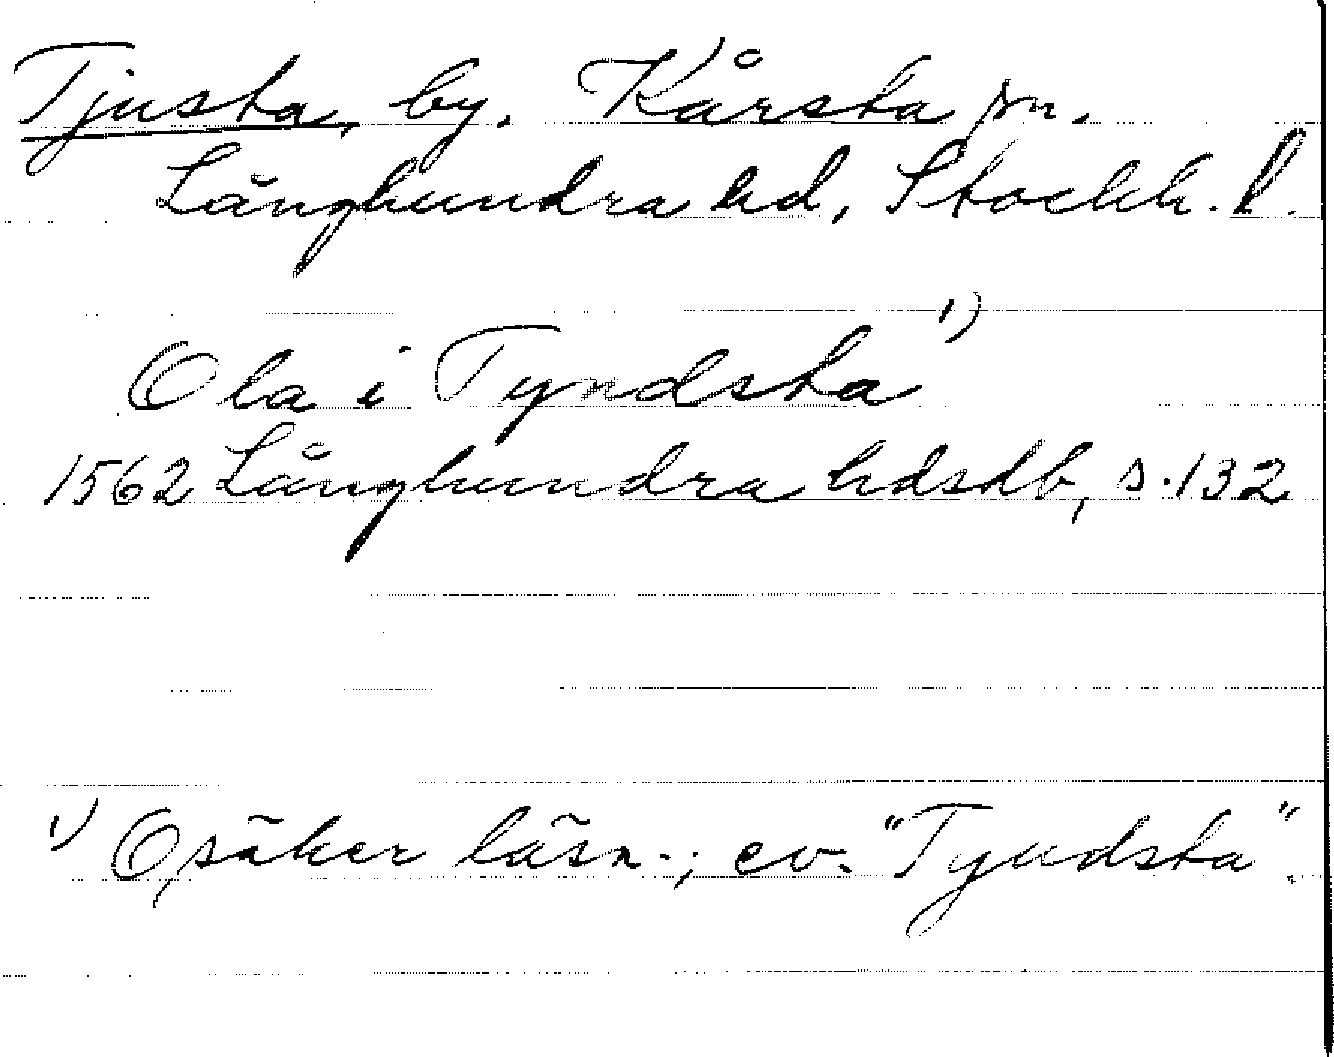 Tjusta, by. Kårsta sn.
Långhundra hd, Stockh. l.
Ola i Tyndsta 1)
1562 Långhundra hdsdb, s. 132
1) Osäker läsn.; ev. "Tyudsta".